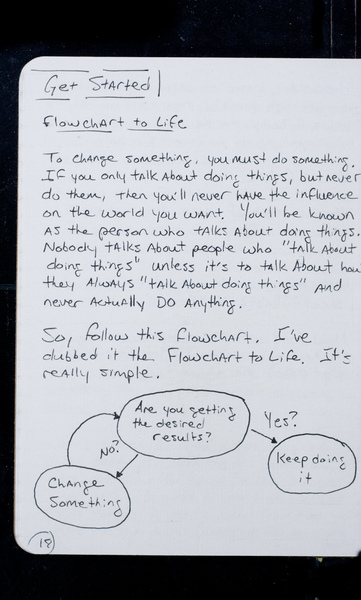 Get Started
Flowchart to Life
To change something, you must do something.
If you only talk about doing things, but never
do them, then you'll never have the influence
on the world you want. You'll be known
as the person who talks about doing things.
Nobody talks about people who "talk about
doing things" unless it's to talk about how
they always "talk about doing things" and
never actually DO anything.
So, follow this flowchart. I've
dubbed it the Flowchart to Life. It's
really simple.
Are you getting
the desired
results?
Yes?
No?
Keep doing
it
Change
Something
18